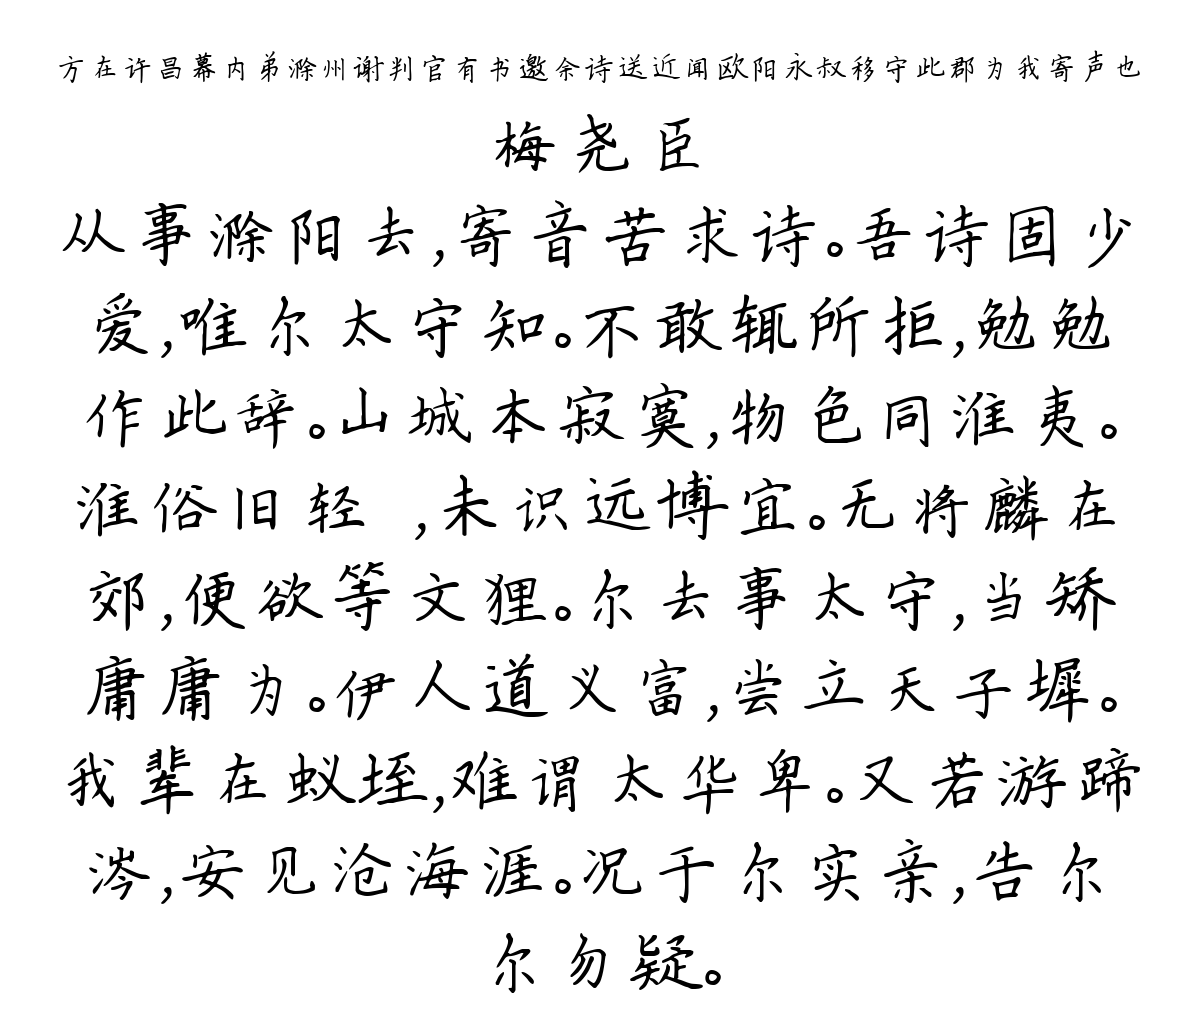 方在许昌幕内弟滁州谢判官有书邀余诗送近闻欧阳永叔移守此郡为我寄声也
梅尧臣
从事滁阳去,寄音苦求诗。吾诗固少
爱,唯尔太守知。不敢辄所拒,勉勉
作此辞。山城本寂寞,物色同淮夷。
淮俗旧轻 ,未识远博宜。无将麟在
郊,便欲等文狸。尔去事太守,当矫
庸庸为。伊人道义富,尝立天子墀。
我辈在蚁垤,难谓太华卑。又若游蹄
涔,安见沧海涯。况于尔实亲,告尔
尔勿疑。